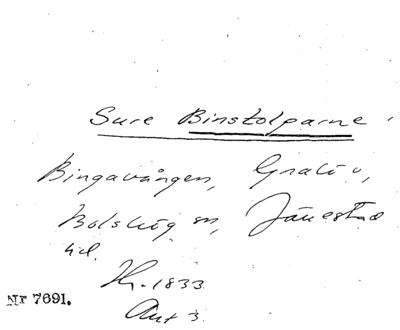 Sure Binstolparne
Bingavången, Gralöv,
Bolshög sn, Järrestad
hd.
Hr. 1833.
Ant 3.
Nr 7691.